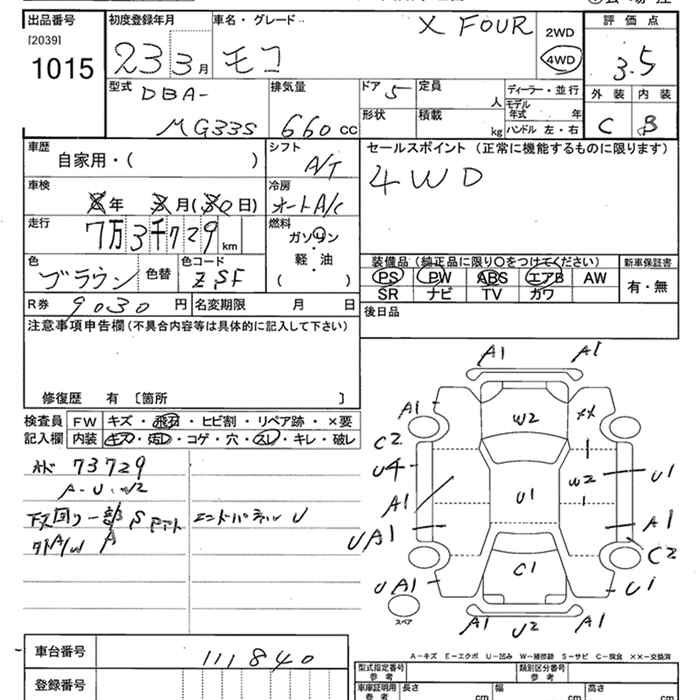 出品番号 初度登録年月 車名・グレード 評価点
[2039]
1015
23 3月 モコ X FOUR 2WD 4WD 3.5
型式 DBA-
MG33S
排気量
660 cc
ドア 5 定員 人 ディーラー・並行
形状 積載 kg モデル年式 年
ハンドル 左・右
外装 内装
C B
車歴 自家用・( )
シフト A/T
セールスポイント (正常に機能するものに限ります)
4WD
車検 年 月( 日)
冷房 オートA/C
走行 7万3千729 km
燃料 ガソリン
軽・油
( )
色 ブラウン 色替 色コード ZSF
装備品 (純正品に限り○をつけてください) 新車保証書
PS PW ABS エアB AW 有・無
SR ナビ TV カワ
R券 9030 円 名変期限 月 日
後日品
注意事項申告欄 (不具合内容等は具体的に記入して下さい)
修復歴 有 〔箇所 〕
検査員 FW キズ・飛石・ヒビ割・リペア跡・×要
記入欄 内装 キズ・汚レ・コゲ・穴・スレ・キレ・破レ
73729
A-U W2
下回り一部S
エンドパネル U
A1 A1
A1 W2 XX
C2
U4 W2 U1
A1 U1
UA1 A1
C2
C1
UA1 U1
スペア
A1 U2 A1
A-キズ E-エクボ U-凹み W-補修跡 S-サビ C-腐食 ××-交換済
車台番号 111840
登録番号
型式指定番号 参考 類別区分番号 参考
車庫証明用 参考 長さ cm 幅 cm 高さ cm